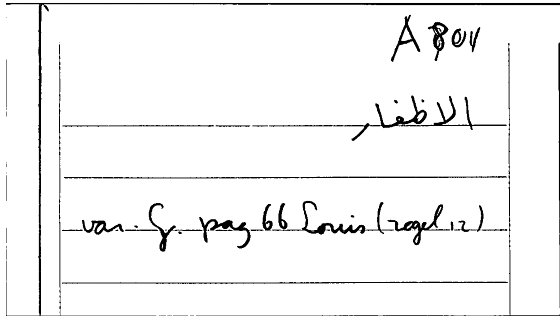 A 804
الاظفار
var. G. pag 66 Louis (regel 12)